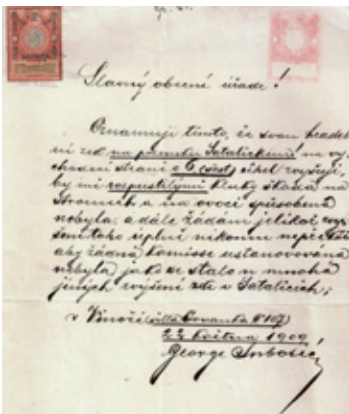 Slavný obecní úřade!
Oznamuji tímto, že svou hradeb
ní zeď na pozemku Satalickém na vý
chodní straně o 6 (šest) cihel zvyšuji,
by mi rozpustilými kluky škoda na
stromech a na ovoci způsobena
nebyla, a dále žádám jelikož zvý
šení toho úplně nikomu nepřekáží
aby žádná komisse ustanovována
nebyla jako se stalo u mnoha
jiných zvýšení zde v Satalicích;
v Vinoři (villa No 107)
22 Května 1909
George